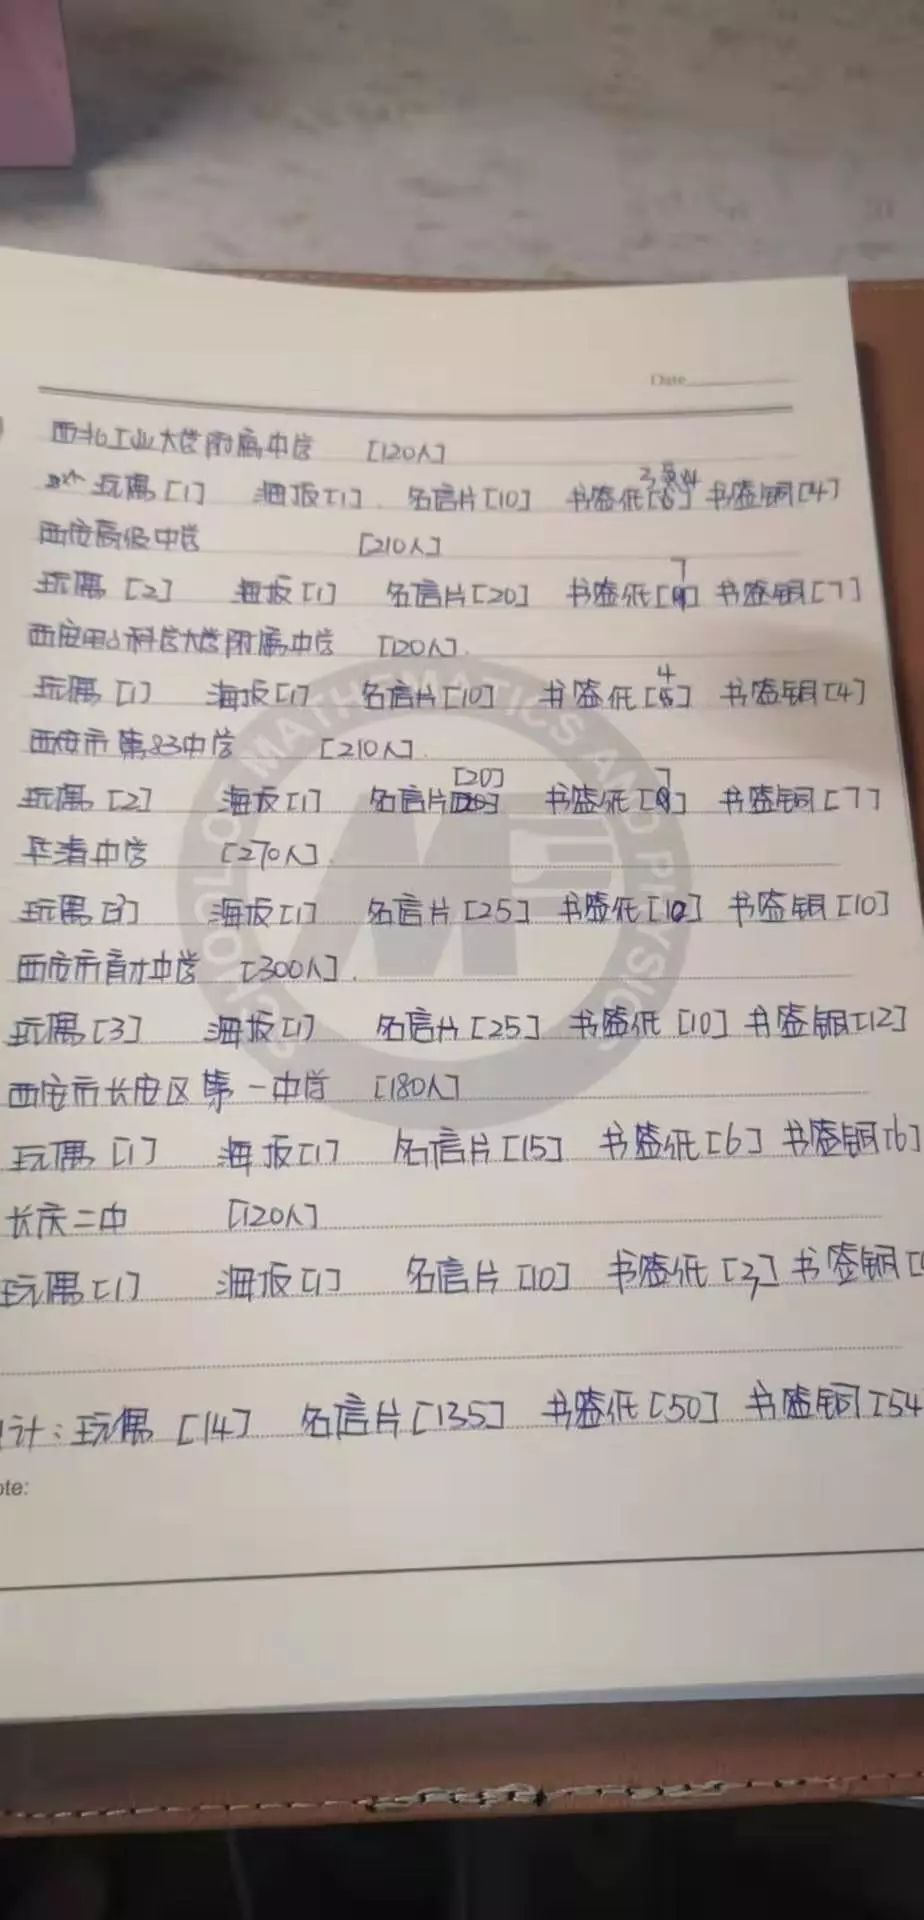 Date
西北工业大学附属中学 [120人]
玩偶 [1] 海报 [1] 名信片 [10] 书签纸 书签铜 [4]
西安高级中学 [210人]
玩偶 [2] 海报 [1] 名信片 [20] 书签纸 7 书签铜 [7]
西安电子科学大学附属中学 [120人].
玩偶 [1] 海报 [1] 名信片 [10] 书签纸 4 书签铜 [4]
西安市第83中学 [210人].
玩偶 [2] 海报 [1] 名信片 [20] 书签纸 7 书签铜 [7]
华清中学 [270人].
玩偶 [3] 海报 [1] 名信片 [25] 书签纸 [10] 书签铜 [10]
西安市育才中学 [300人].
玩偶 [3] 海报 [1] 名信片 [25] 书签纸 [10] 书签铜 [12]
西安市长安区第一中学 [180人]
玩偶 [1] 海报 [1] 名信片 [15] 书签纸 [6] 书签铜 [6]
长庆二中 [120人]
玩偶 [1] 海报 [1] 名信片 [10] 书签纸 [3] 书签铜 [
计: 玩偶 [14] 名信片 [135] 书签纸 [50] 书签铜 [54
ote:
SCHOOL OF MATHEMATICS AND PHYSIC